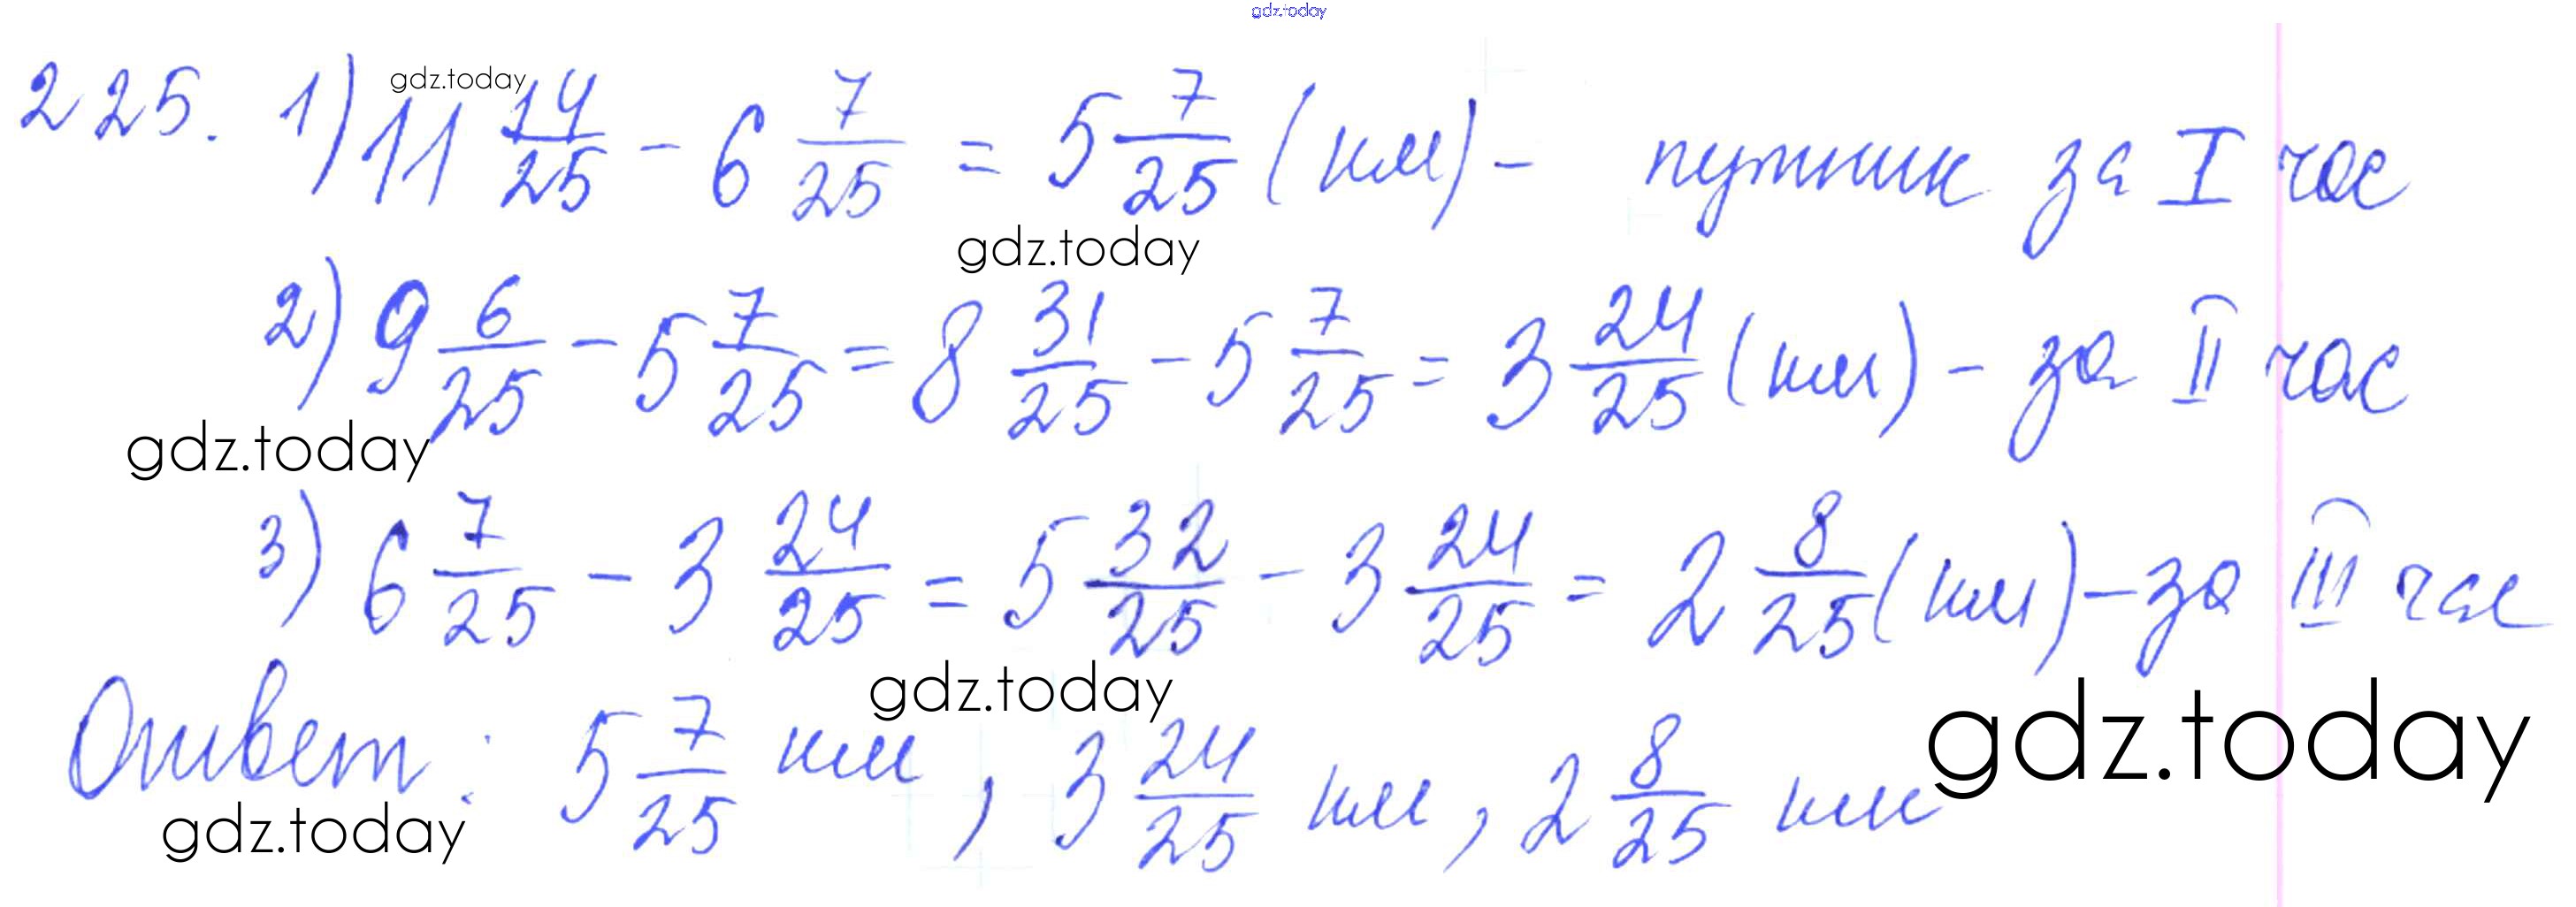 gdz.today
225. 1) 11 14/25 - 6 7/25 = 5 7/25 (км) - путник за I час
gdz.today
gdz.today
2) 9 6/25 - 5 7/25 = 8 31/25 - 5 7/25 = 3 24/25 (км) - за II час
gdz.today
3) 6 7/25 - 3 24/25 = 5 32/25 - 3 24/25 = 2 8/25 (км) - за III час
gdz.today
gdz.today
Ответ: 5 7/25 км, 3 24/25 км, 2 8/25 км
gdz.today